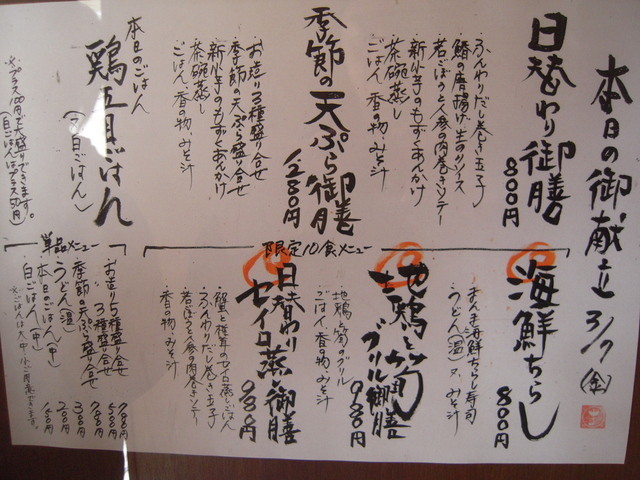 本日の御献立 3/7(金)
日替わり御膳
800円
ふんわりだし巻き玉子
鰆の唐揚げ 生のりソース
若ごぼうと人参の肉巻きソテー
新小芋のもずくあんかけ
茶碗蒸し
ごはん、香の物、みそ汁
季節の天ぷら御膳
1280円
お造り3種盛り合せ
季節の天ぷら盛り合せ
新小芋のもずくあんかけ
茶碗蒸し
ごはん、香の物、みそ汁
本日のごはん
鶏五目ごはん
(又は白ごはん)
※プラス100円で大盛りできます。
(白ごはんはプラス50円)
限定10食メニュー
海鮮ちらし
800円
まんま海鮮ちらし寿司
うどん(温)又はみそ汁
地鶏と筍
グリル御膳
980円
地鶏と筍のグリル
ごはん、香の物、みそ汁
日替わり
セイロ蒸し御膳
980円
蟹と椎茸のセイロ蒸しごはん
ふんわりだし巻き玉子
若ごぼうと人参の肉巻きソテー
香の物、みそ汁
単品メニュー
お造り5種盛り合せ
3種盛り合せ 500円
季節の天ぷら盛り合せ
うどん(温) 300円
本日のごはん(中) 200円
白ごはん(中) 150円